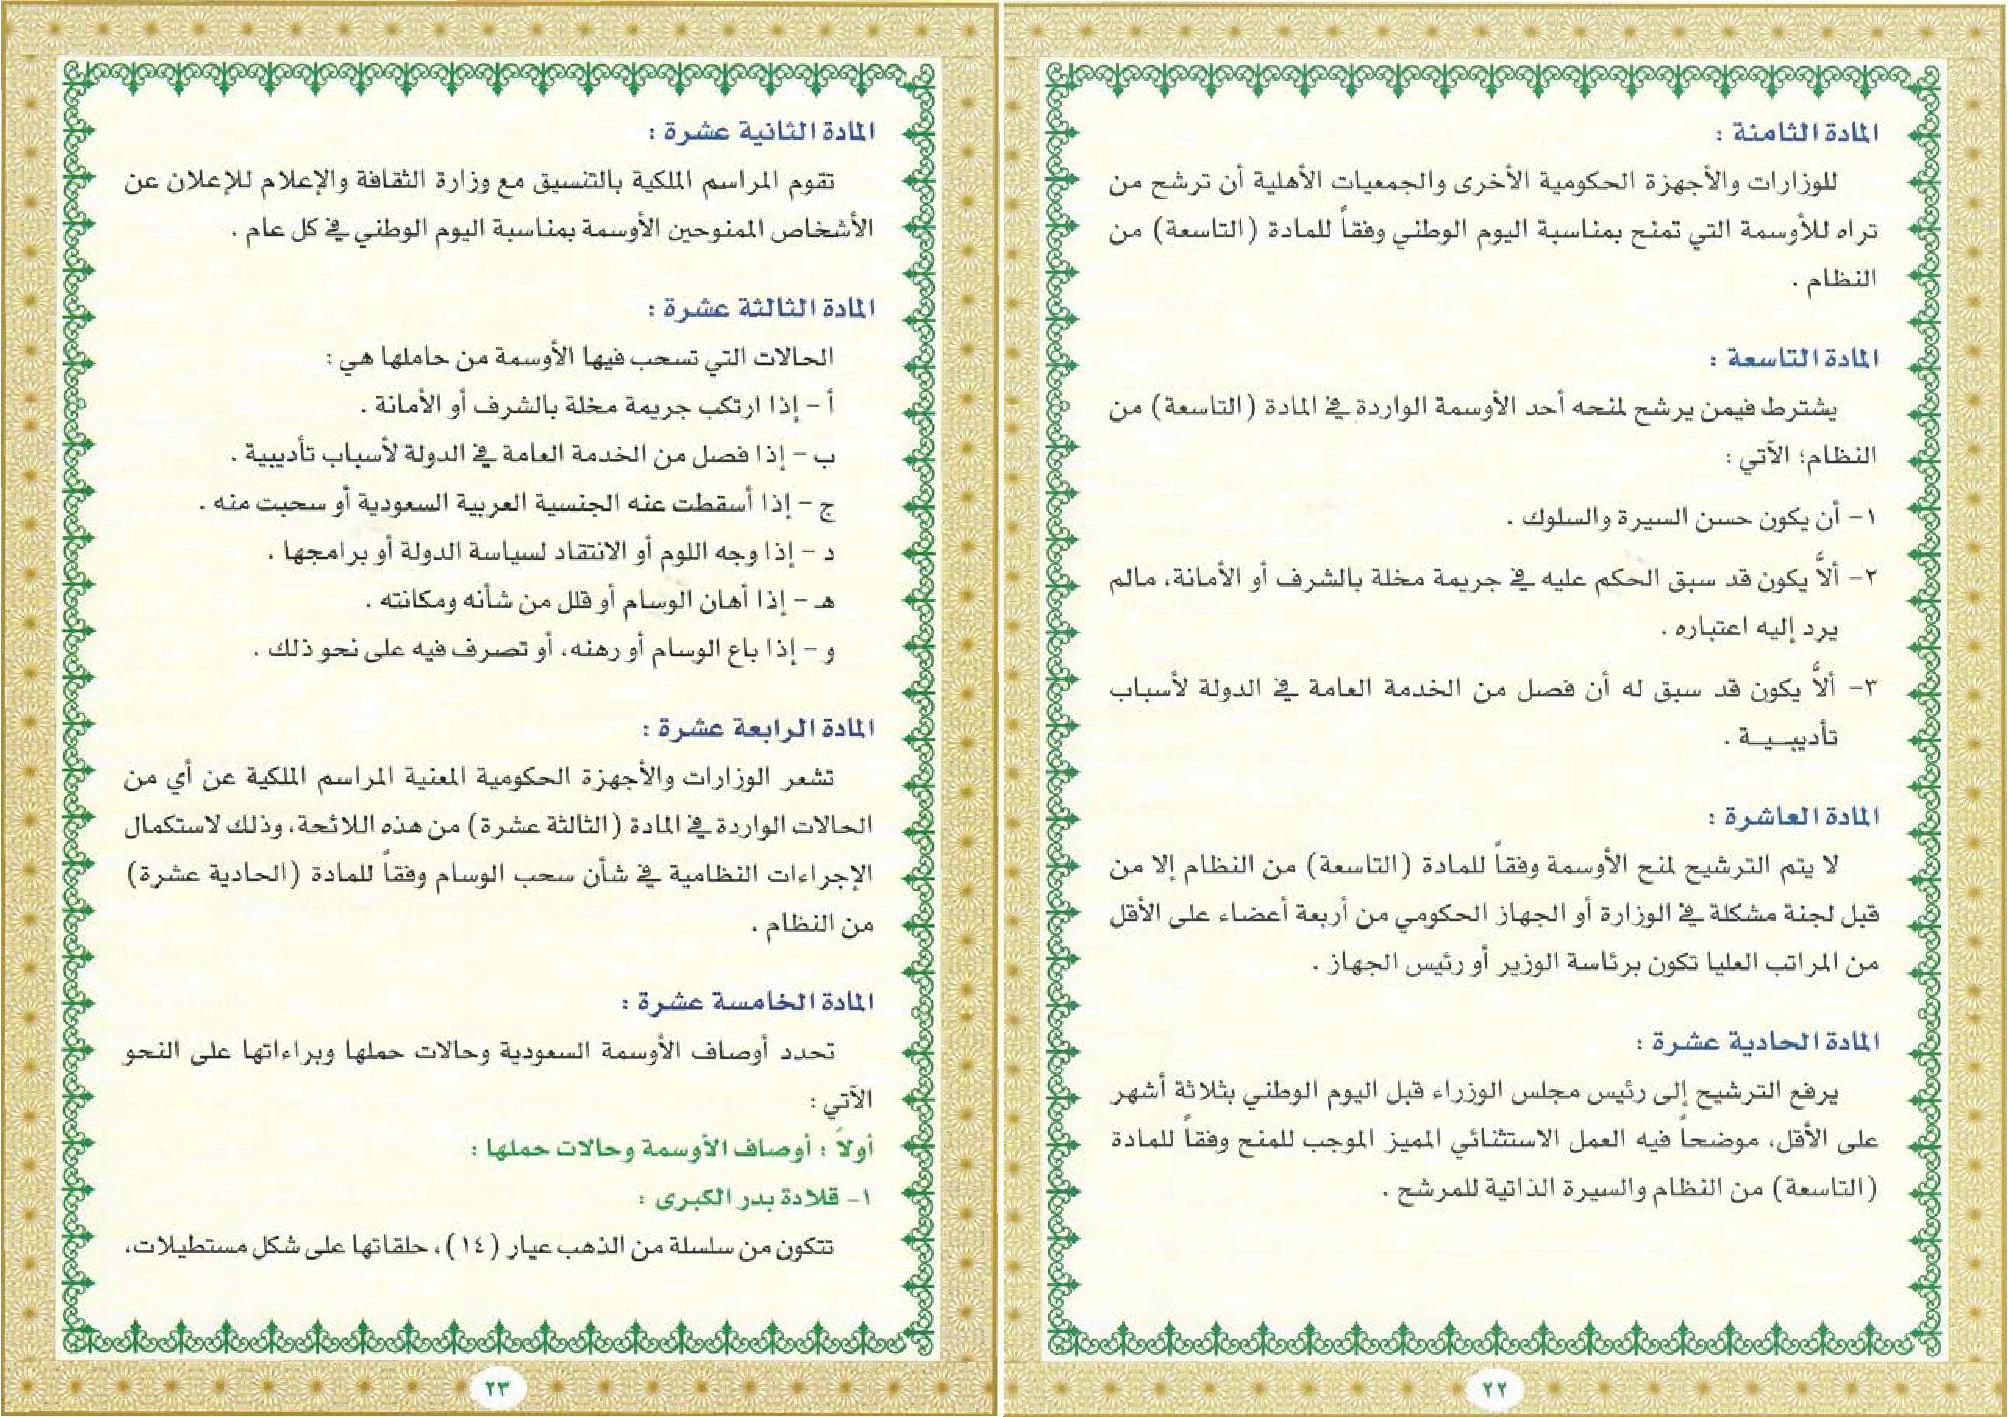 المادة الثامنة :
للوزارات والأجهزة الحكومية الأخرى والجمعيات الأهلية أن ترشح من
تراه للأوسمة التي تمنح بمناسبة اليوم الوطني وفقاً للمادة (التاسعة) من
النظام .
المادة التاسعة :
يشترط فيمن يرشح لمنحه أحد الأوسمة الواردة في المادة (التاسعة) من
النظام؛ الآتي :
١- أن يكون حسن السيرة والسلوك .
٢- ألاَّ يكون قد سبق الحكم عليه في جريمة مخلة بالشرف أو الأمانة، مالم
يرد إليه اعتباره .
٣- ألاَّ يكون قد سبق له أن فصل من الخدمة العامة في الدولة لأسباب
تأديبـيـة .
المادة العاشرة :
لا يتم الترشيح لمنح الأوسمة وفقاً للمادة (التاسعة) من النظام إلا من
قبل لجنة مشكلة في الوزارة أو الجهاز الحكومي من أربعة أعضاء على الأقل
من المراتب العليا تكون برئاسة الوزير أو رئيس الجهاز .
المادة الحادية عشرة :
يرفع الترشيح إلى رئيس مجلس الوزراء قبل اليوم الوطني بثلاثة أشهر
على الأقل، موضحاً فيه العمل الاستثنائي المميز الموجب للمنح وفقاً للمادة
(التاسعة) من النظام والسيرة الذاتية للمرشح .
٢٢
المادة الثانية عشرة :
تقوم المراسم الملكية بالتنسيق مع وزارة الثقافة والإعلام للإعلان عن
الأشخاص الممنوحين الأوسمة بمناسبة اليوم الوطني في كل عام .
المادة الثالثة عشرة :
الحالات التي تسحب فيها الأوسمة من حاملها هي :
أ - إذا ارتكب جريمة مخلة بالشرف أو الأمانة .
ب - إذا فصل من الخدمة العامة في الدولة لأسباب تأديبية .
ج - إذا أسقطت عنه الجنسية العربية السعودية أو سحبت منه .
د - إذا وجه اللوم أو الانتقاد لسياسة الدولة أو برامجها .
هـ - إذا أهان الوسام أو قلل من شأنه ومكانته .
و - إذا باع الوسام أو رهنه، أو تصرف فيه على نحو ذلك .
المادة الرابعة عشرة :
تشعر الوزارات والأجهزة الحكومية المعنية المراسم الملكية عن أي من
الحالات الواردة في المادة (الثالثة عشرة) من هذه اللائحة، وذلك لاستكمال
الإجراءات النظامية في شأن سحب الوسام وفقاً للمادة (الحادية عشرة)
من النظام .
المادة الخامسة عشرة :
تحدد أوصاف الأوسمة السعودية وحالات حملها وبراءاتها على النحو
الآتي :
أولاً : أوصاف الأوسمة وحالات حملها :
١- قلادة بدر الكبرى :
تتكون من سلسلة من الذهب عيار (١٤)، حلقاتها على شكل مستطيلات،
٢٣